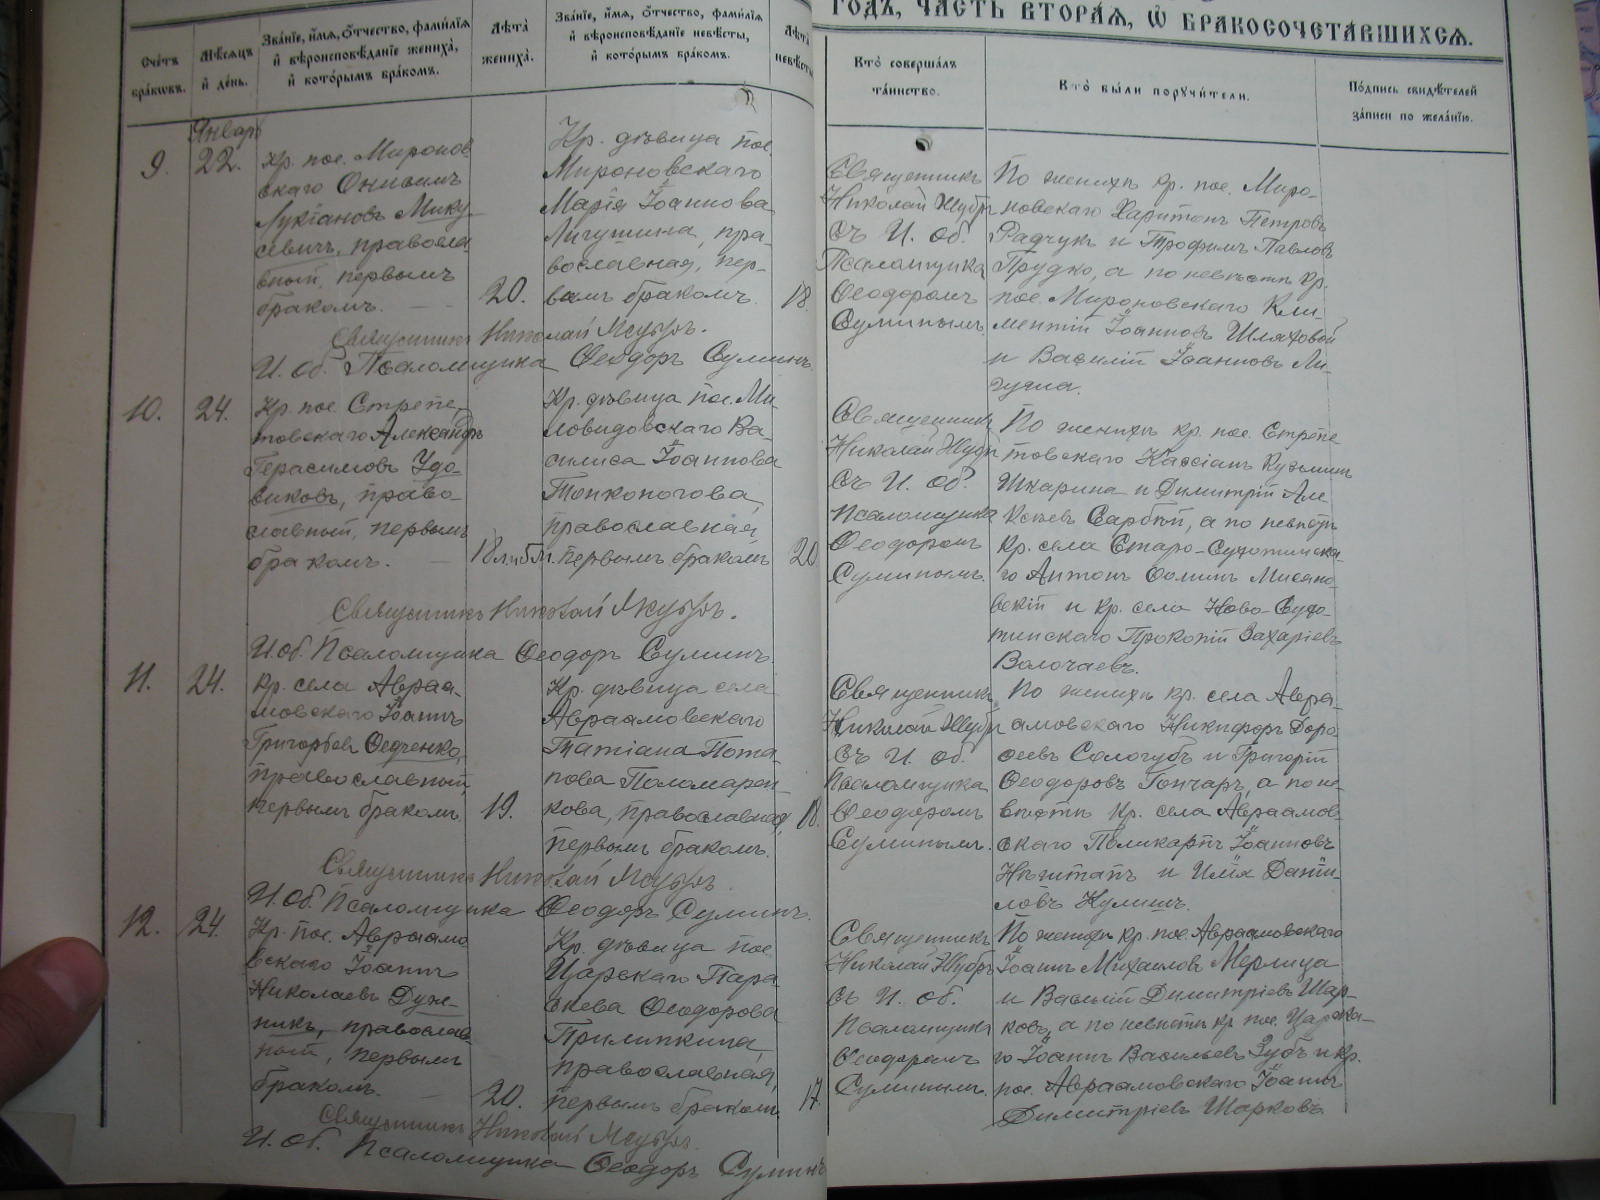 годъ, часть вторая, ѡ бракосочетавшихся.
Счетъ браковъ.
Мѣсяцъ и день.
Званіе, имя, отчество, фамилія и вѣроисповѣданіе жениха, и которымъ бракомъ.
Лѣта жениха.
Званіе, имя, отчество, фамилія и вѣроисповѣданіе невѣсты, и которымъ бракомъ.
Лѣта невѣсты
Кто совершалъ таинство.
Кто были поручители.
Подпись свидѣтелей записи по желанію.
Январь
9.
22.
Кр. пос. Миронов
скаго Онисимъ
Лукіановъ Мику
севичъ, правосла
вный, первымъ
бракомъ.
20.
Кр. дѣвица пос.
Мироновскаго
Марія Іоаннова
Лигушина, пра-
вославная, пер-
вымъ бракомъ.
18
Священникъ
Николай
съ И. об.
Псаломщика
Ѳеодоромъ
Суминымъ.
По женихѣ кр. пос. Миро-
новскаго Харитонъ Петровъ
Радчукъ и Трофимъ Павловъ
Прудко, а по невѣстѣ кр.
пос. Мироновскаго Кли-
ментій Іоанновъ Шляховой
и Василій Іоанновъ Ли-
гуша.
Священникъ Николай
И. об. Псаломщика Ѳеодоръ Суминъ.
10.
24.
Кр. пос. Стрепе-
товскаго Александръ
Герасимовъ Удо
виковъ, право-
славный, первымъ
бракомъ.
18 л. и 6 м.
Кр. дѣвица пос. Ми-
ловидовскаго Ва-
силиса Іоаннова
Тонконогова,
православная,
первымъ бракомъ
20
Священникъ
Николай
съ И. об.
Псаломщика
Ѳеодоромъ
Суминымъ.
По женихѣ кр. пос. Стрепе
товскаго Кассіанъ Кузьминъ
Шкарина и Димитрій Але
ксѣевъ Сарбей, а по невѣстѣ
кр. села Старо-Сухотинска-
го Антонъ Ѳоминъ
и кр. села Ново-Сухо-
тинскаго Прокопій Захаріевъ
Волочаевъ.
Священникъ Николай
И. об. Псаломщика Ѳеодоръ Суминъ.
11.
24.
Кр. села Авраа-
мовскаго Іоаннъ
Григорьевъ Ѳедченко,
православный,
первымъ бракомъ.
19.
Кр. дѣвица села
Авраамовскаго
Татіана Пота-
пова Паламарен-
кова, православная,
первымъ бракомъ.
18.
Священникъ
Николай
съ И. об.
Псаломщика
Ѳеодоромъ
Суминымъ.
По женихѣ кр. села Авра-
амовскаго Никифоръ Доро-
ѳеевъ Сологубъ и Григорій
Ѳеодоровъ Гончаръ, а по не-
вѣстѣ кр. села Авраамов-
скаго Поликарпъ Іоанновъ
и Илія Даніи-
ловъ Кулишъ.
Священникъ Николай
И. об. Псаломщика Ѳеодоръ Суминъ.
12.
24.
Кр. пос. Авраамо
вскаго Іоаннъ
Николаевъ Дуж-
никъ, православ
ный, первымъ
бракомъ.
20.
Кр. дѣвица пос.
Царскаго Пара
скева Ѳеодорова
Прилипкина,
православная,
первымъ бракомъ
17.
Священникъ
Николай
съ И. об.
Псаломщика
Ѳеодоромъ
Суминымъ.
По женихѣ кр. пос. Авраамовскаго
Іоаннъ Михаиловъ Мерлица
и Василій Димитріевъ Шар-
ковъ, а по невѣстѣ кр. пос. Царска-
го Іоаннъ Васильевъ Зубъ и кр.
пос. Авраамовскаго Іоаннъ
Димитріевъ Шарковъ.
Священникъ Николай
И. об. Псаломщика Ѳеодоръ Суминъ